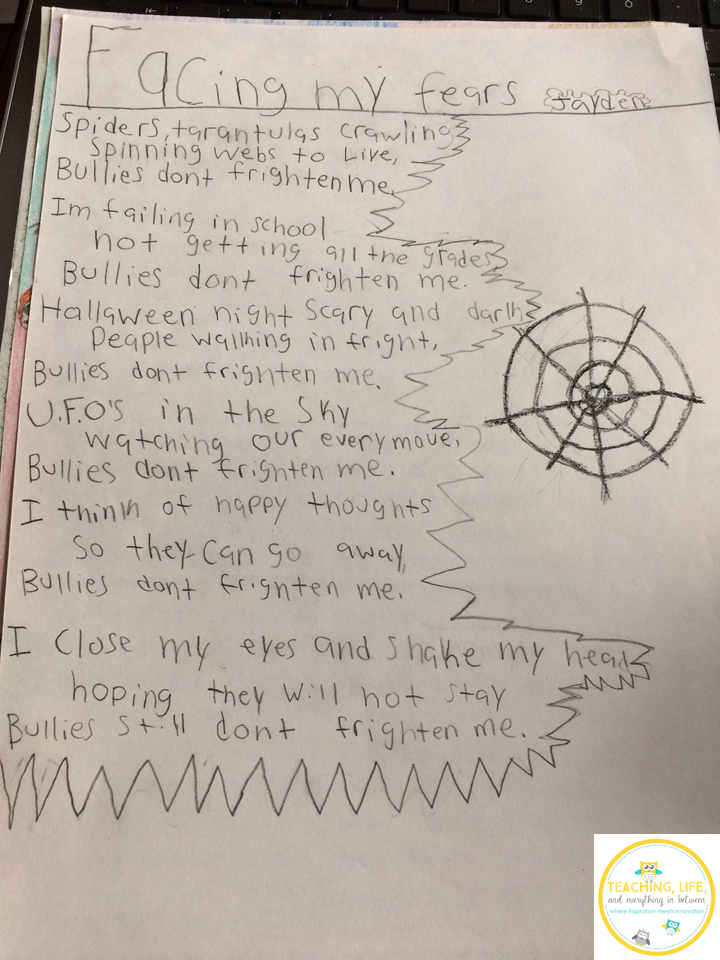 Facing my fears Jayden
Spiders, tarantulas crawling
Spinning webs to Live,
Bullies dont frighten me.
Im failing in school
not getting all the grades,
Bullies dont frighten me.
Hallaween night Scary and darlh,
Peaple walhing in fright,
Bullies dont frighten me.
U.F.O's in the Sky
watching our every move,
Bullies dont frighten me.
I thinh of happy thoughts
So they can go away,
Bullies dont frighten me.
I Close my eyes and Shahe my head
hoping they will not stay
Bullies still dont frighten me.
TEACHING, LIFE,
and everything in between
where inspiration meets innovation